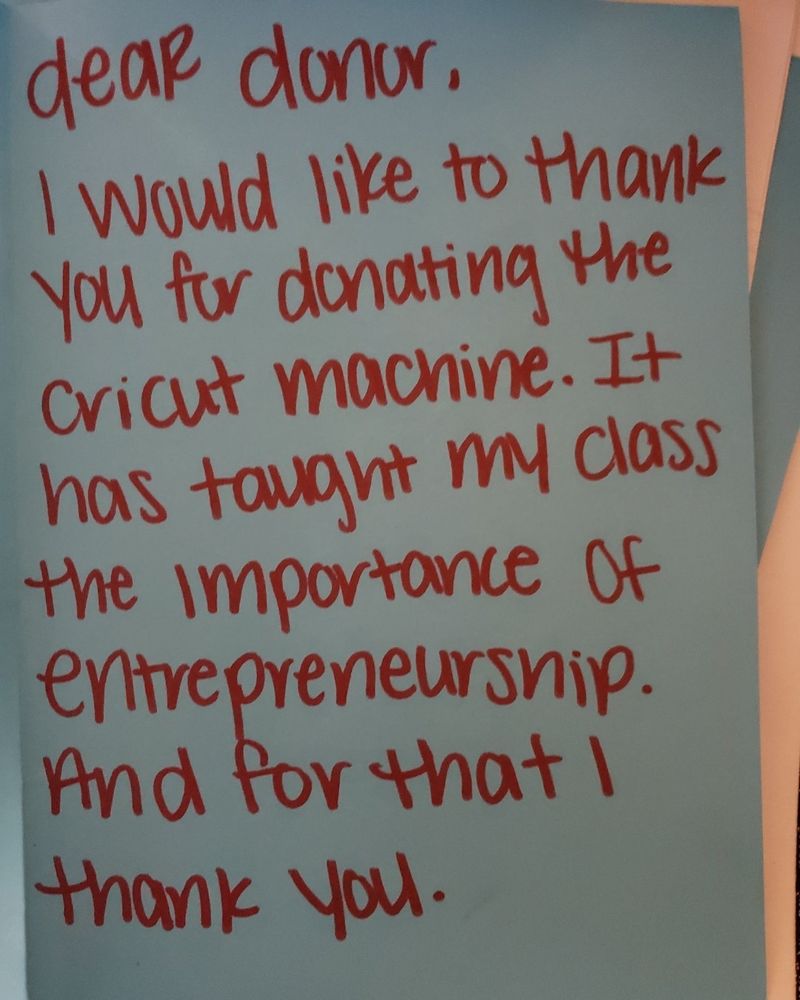 dear donor,
I would like to thank
you for donating the
cricut machine. It
has taught my class
the importance of
entrepreneurship.
And for that I
thank you.